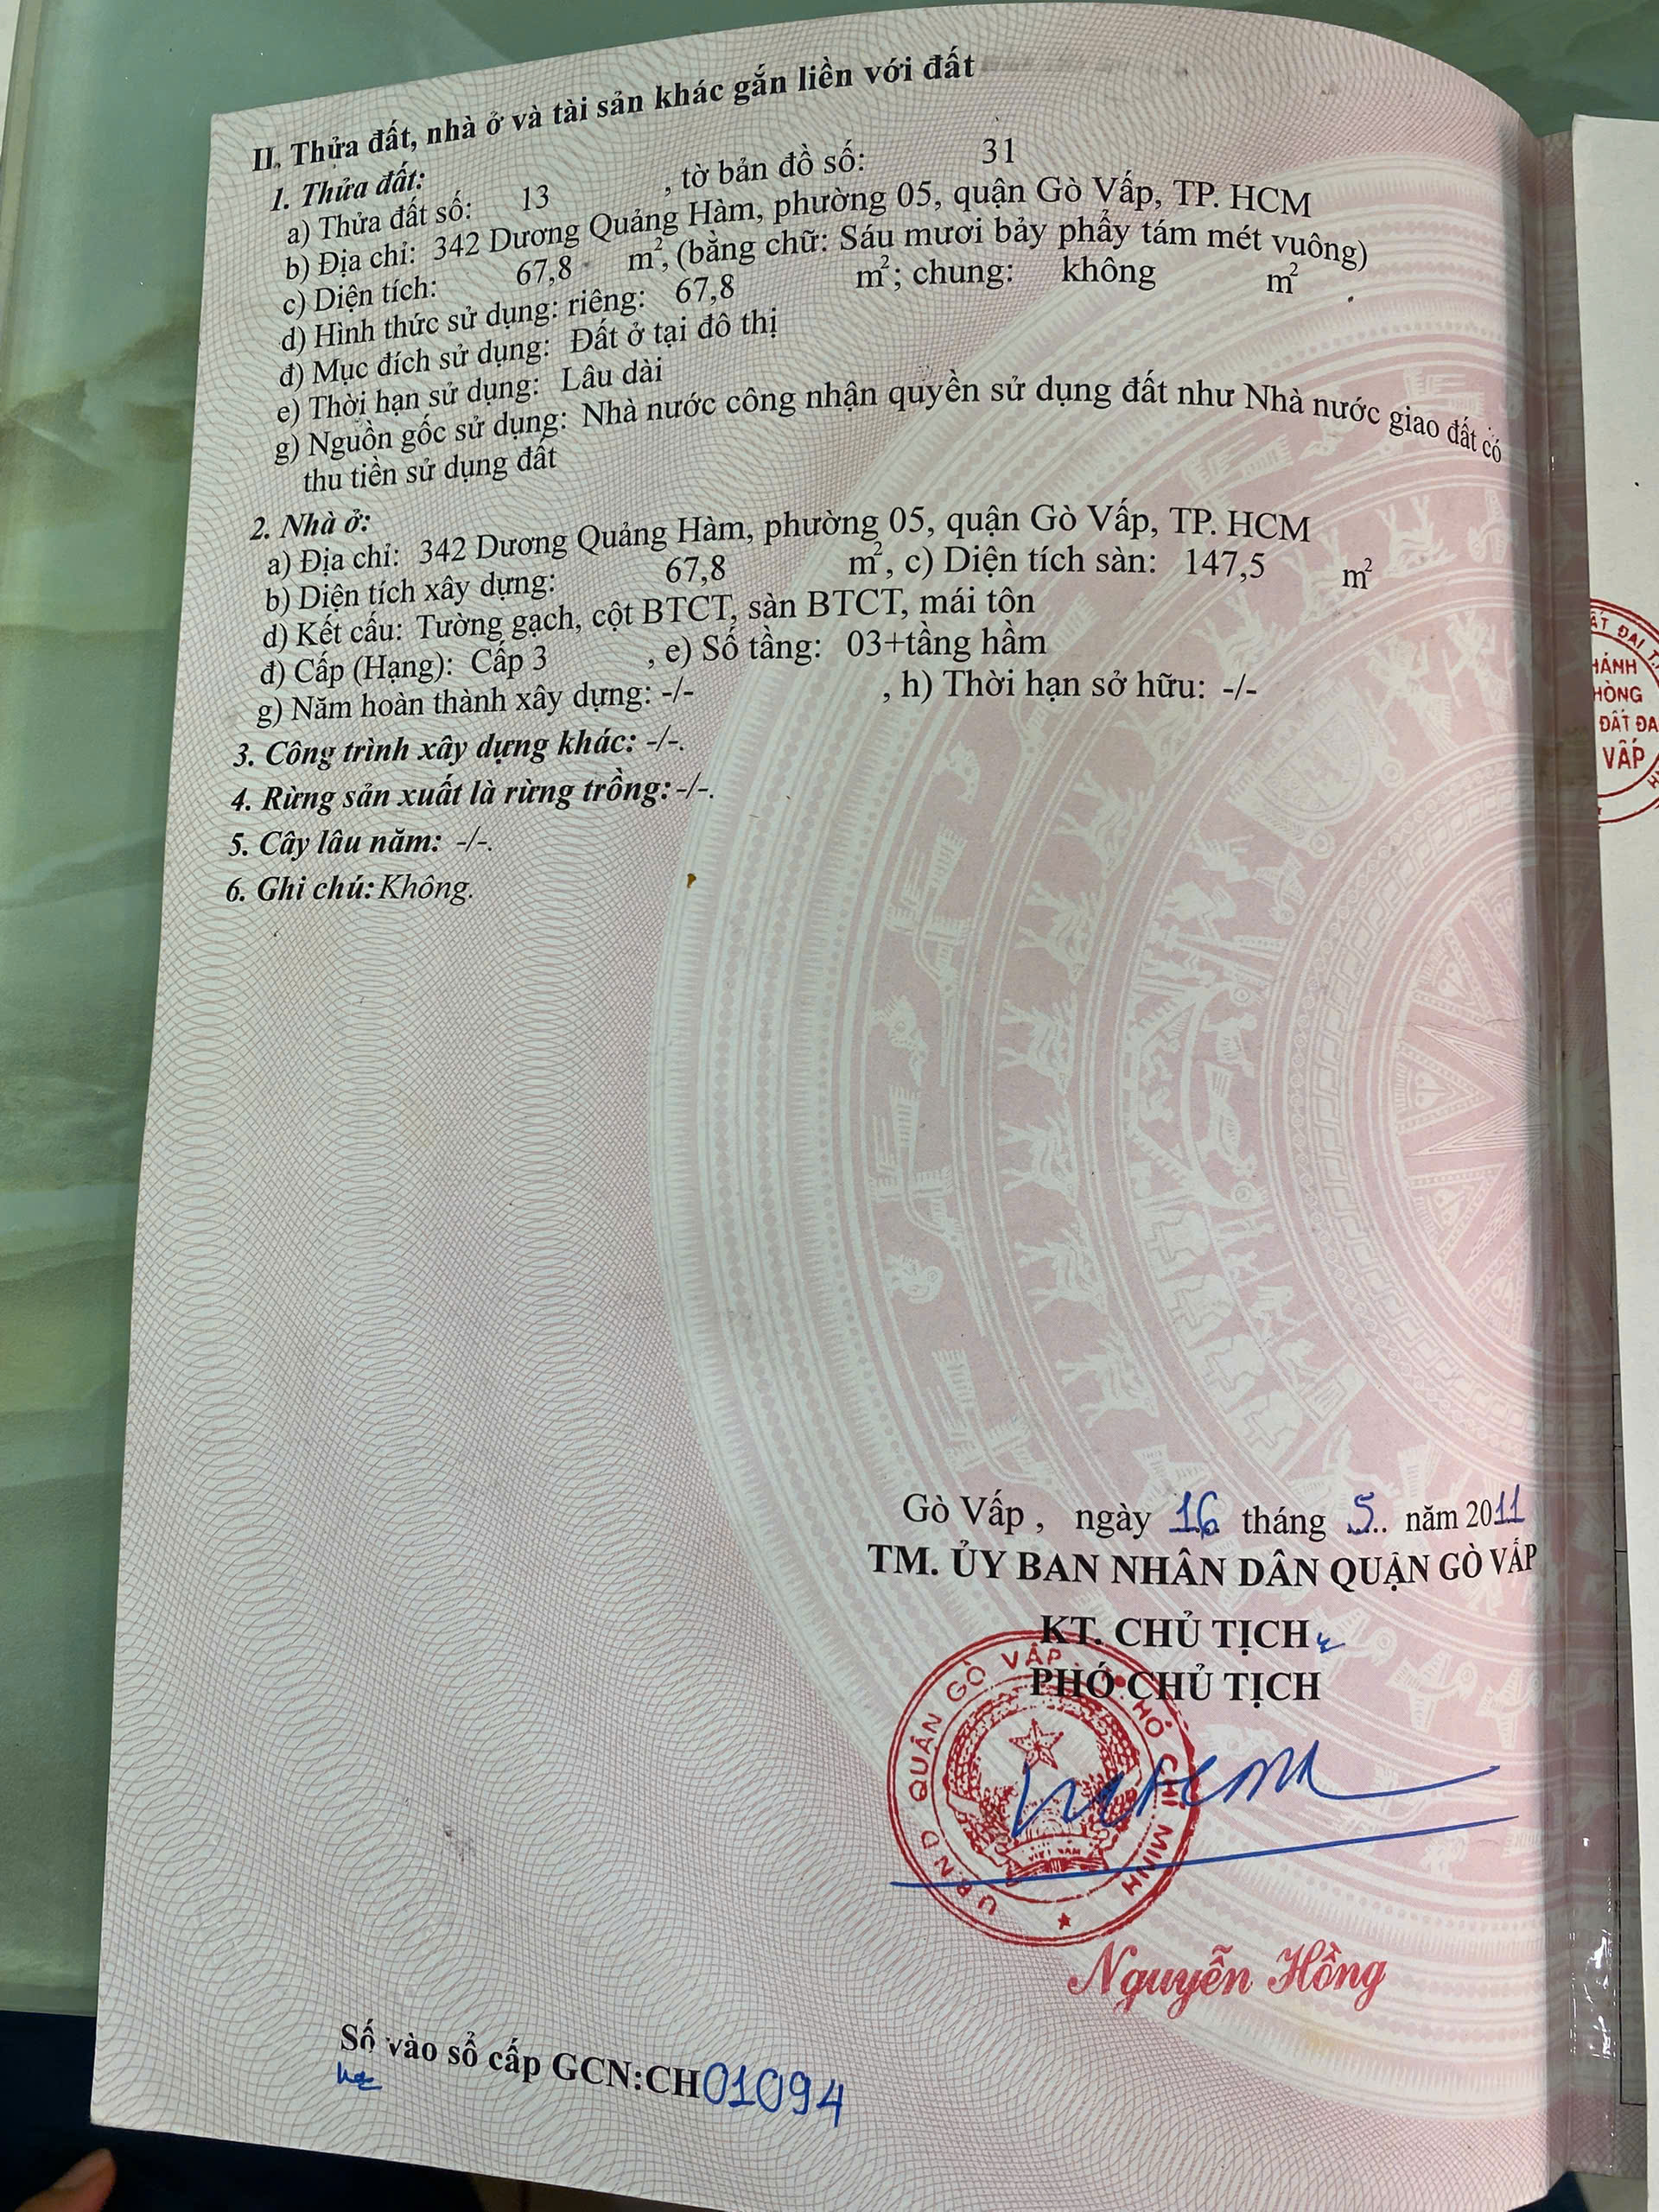 II. Thửa đất, nhà ở và tài sản khác gắn liền với đất
1. Thửa đất:
a) Thửa đất số: 13 , tờ bản đồ số: 31
b) Địa chỉ: 342 Dương Quảng Hàm, phường 05, quận Gò Vấp, TP. HCM
c) Diện tích: 67,8 m², (bằng chữ: Sáu mươi bảy phẩy tám mét vuông)
d) Hình thức sử dụng: riêng: 67,8 m²; chung: không m²
đ) Mục đích sử dụng: Đất ở tại đô thị
e) Thời hạn sử dụng: Lâu dài
g) Nguồn gốc sử dụng: Nhà nước công nhận quyền sử dụng đất như Nhà nước giao đất có
thu tiền sử dụng đất
2. Nhà ở:
a) Địa chỉ: 342 Dương Quảng Hàm, phường 05, quận Gò Vấp, TP. HCM
b) Diện tích xây dựng: 67,8 m², c) Diện tích sàn: 147,5 m²
d) Kết cấu: Tường gạch, cột BTCT, sàn BTCT, mái tôn
đ) Cấp (Hạng): Cấp 3 , e) Số tầng: 03+tầng hầm
g) Năm hoàn thành xây dựng: -/- , h) Thời hạn sở hữu: -/-
3. Công trình xây dựng khác: -/-.
4. Rừng sản xuất là rừng trồng: -/-.
5. Cây lâu năm: -/-.
6. Ghi chú: Không.
ẤT ĐAI T
HÁNH
HÒNG
ĐẤT ĐA
VẤP
Gò Vấp , ngày 16 tháng 5.. năm 2011
TM. ỦY BAN NHÂN DÂN QUẬN GÒ VẤP
KT. CHỦ TỊCH
PHÓ CHỦ TỊCH
UBND QUẬN GÒ VẤP HỒ CHÍ MINH
VIỆT NAM
Nguyễn Hồng
Số vào sổ cấp GCN:CH01094